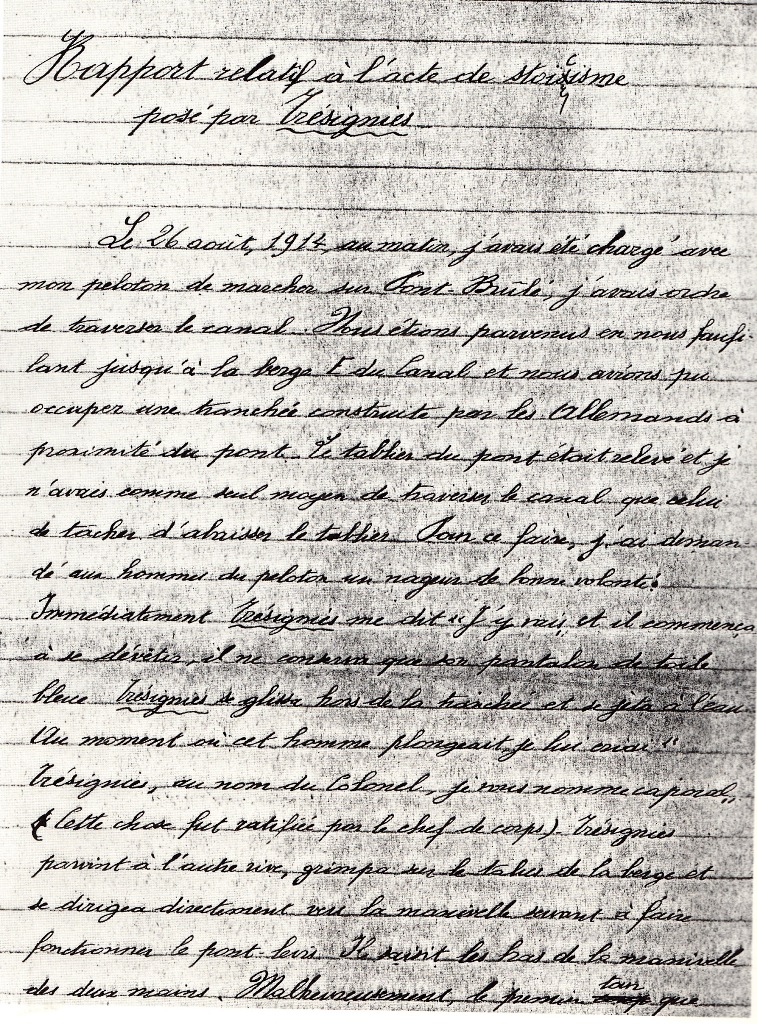 Rapport relatif à l'acte de stoicisme
posé par Trésignies
Le 26 août, 1914 au matin, j'avais été chargé avec
mon peloton de marcher sur Pont-Brûlé, j'avais ordre
de traverser le canal. Nous étions parvenus en nous faufi-
lant jusqu'à la berge du Canal et nous avions pu
occuper une tranchée construite par les Allemands à
proximité du pont. Le tablier du pont était relevé et je
n'avais comme seul moyen de traverser le canal que celui
de tacher d'abaisser le tablier. Pour ce faire, j'ai deman-
dé aux hommes du peloton un nageur de bonne volonté.
Immédiatement Trésignies me dit "J'y vais" et il commença
à se dévêtir, il ne conserva que son pantalon de toile
bleue Trésignies se glissa hors de la tranchée et se jeta à l'eau
Au moment où cet homme plongeait, je lui criai "
Trésignies, au nom du Colonel, je vous nomme caporal"
(Cette chose fut ratifiée par le chef de corps). Trésignies
parvint à l'autre rive, grimpa sur le talus de la berge et
se dirigea directement vers la manivelle servant à faire
fonctionner le pont-levis Il saisit les bras de la manivelle
des deux mains. Malheureusement, le premier tour que